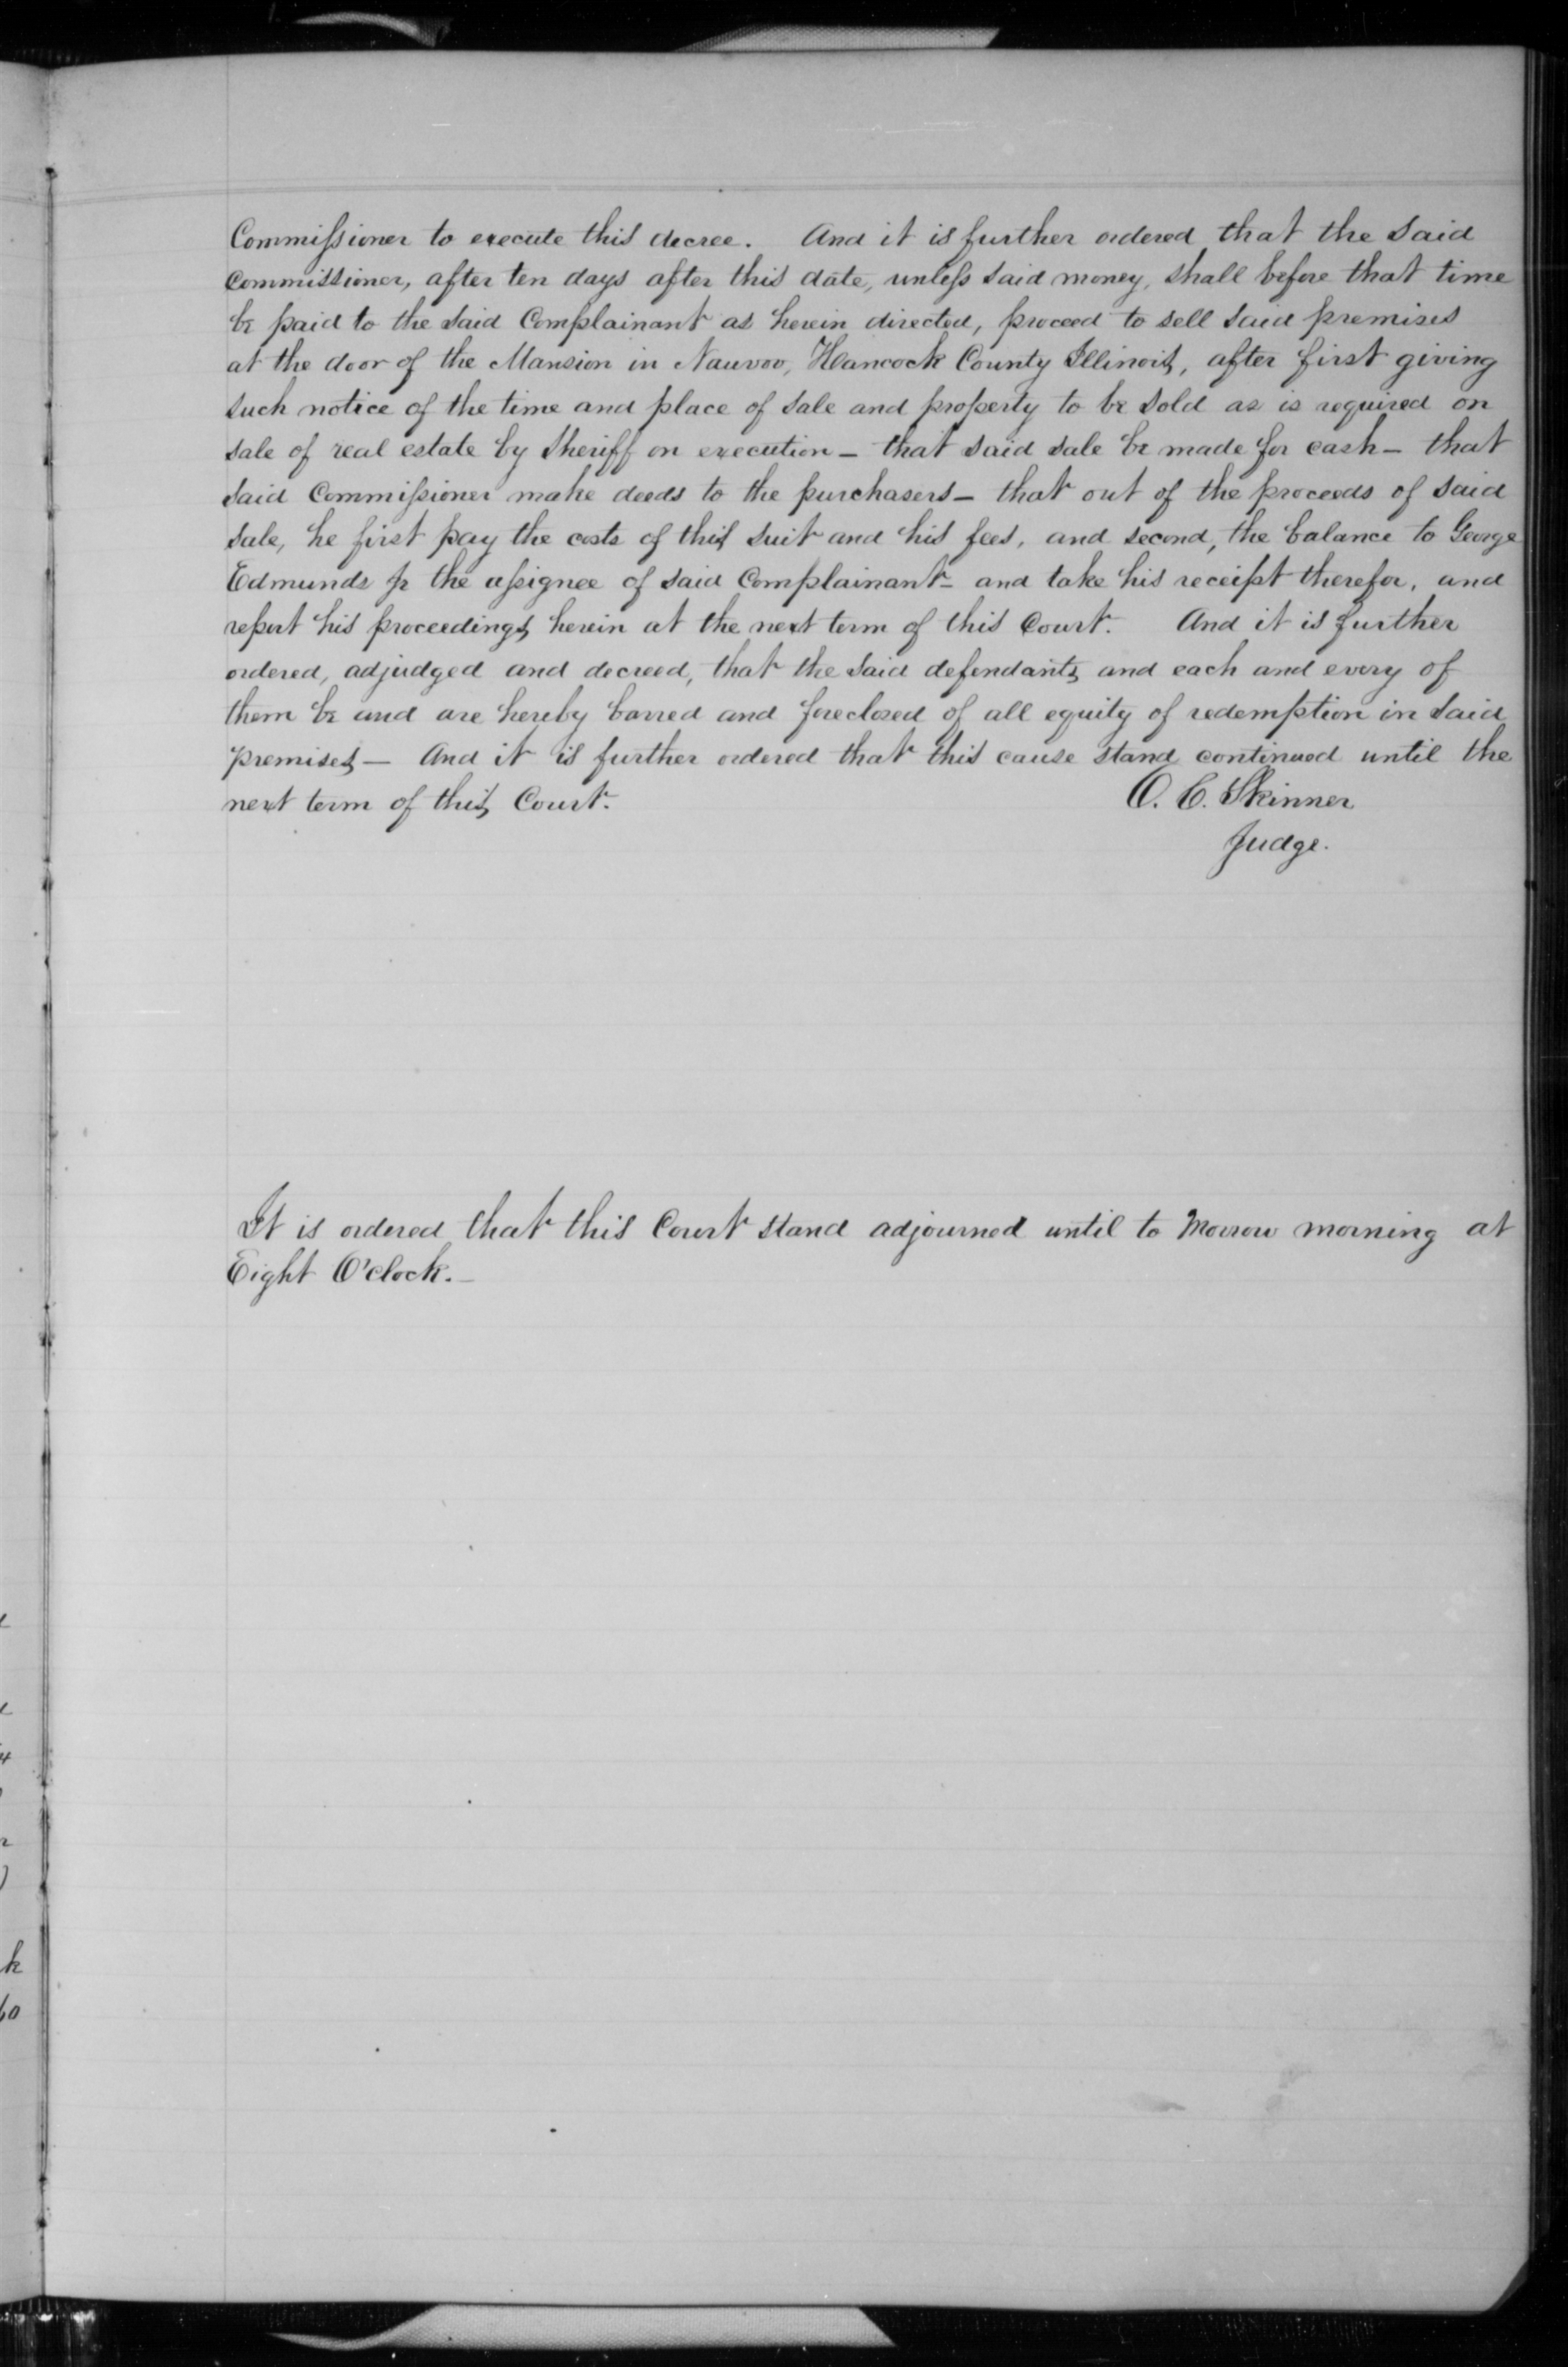 Commissioner to execute this decree. And it is further ordered that the said
Commissioner, after ten days after this date, unless said money, shall before that time
be paid to the said Complainant as herein directed, proceed to sell said premises
at the door of the Mansion in Nauvoo, Hancock County Illinois, after first giving
such notice of the time and place of sale and property to be sold as is required on
sale of real estate by Sheriff on execution - that said sale be made for cash - that
said Commissioner make deeds to the purchasers - that out of the proceeds of said
sale, he first pay the costs of this suit and his fees, and second, the balance to George
Edmunds Jr the assignee of said Complainant - and take his receipt therefor, and
report his proceedings herein at the next term of this Court. And it is further
ordered, adjudged and decreed, that the said defendants and each and every of
them be and are hereby barred and foreclosed of all equity of redemption in said
premises — And it is further ordered that this cause stand continued until the
next term of this Court. O. C. Skinner
Judge.
It is ordered that this Court stand adjourned until to Morrow morning at
Eight O'clock. -
k
60